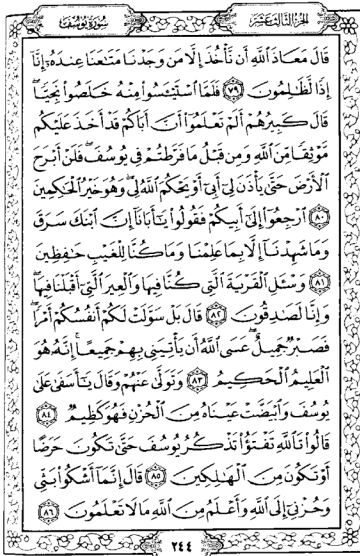 الجزء الثالث عشر
سورة يوسف
قَالَ مَعَاذَ ٱللَّهِ أَن نَّأْخُذَ إِلَّا مَن وَجَدْنَا مَتَٰعَنَا عِندَهُۥٓ إِنَّآ
إِذًا لَّظَٰلِمُونَ ٧٩ فَلَمَّا ٱسْتَيْـَٔسُوا۟ مِنْهُ خَلَصُوا۟ نَجِيًّا ۖ
قَالَ كَبِيرُهُمْ أَلَمْ تَعْلَمُوٓا۟ أَنَّ أَبَاكُمْ قَدْ أَخَذَ عَلَيْكُم
مَّوْثِقًا مِّنَ ٱللَّهِ وَمِن قَبْلُ مَا فَرَّطتُمْ فِى يُوسُفَ ۖ فَلَنْ أَبْرَحَ
ٱلْأَرْضَ حَتَّىٰ يَأْذَنَ لِىٓ أَبِىٓ أَوْ يَحْكُمَ ٱللَّهُ لِى ۖ وَهُوَ خَيْرُ ٱلْحَٰكِمِينَ
٨٠ ٱرْجِعُوٓا۟ إِلَىٰٓ أَبِيكُمْ فَقُولُوا۟ يَٰٓأَبَانَآ إِنَّ ٱبْنَكَ سَرَقَ
وَمَا شَهِدْنَآ إِلَّا بِمَا عَلِمْنَا وَمَا كُنَّا لِلْغَيْبِ حَٰفِظِينَ
٨١ وَسْـَٔلِ ٱلْقَرْيَةَ ٱلَّتِى كُنَّا فِيهَا وَٱلْعِيرَ ٱلَّتِىٓ أَقْبَلْنَا فِيهَا ۖ
وَإِنَّا لَصَٰدِقُونَ ٨٢ قَالَ بَلْ سَوَّلَتْ لَكُمْ أَنفُسُكُمْ أَمْرًا ۖ
فَصَبْرٌ جَمِيلٌ ۖ عَسَى ٱللَّهُ أَن يَأْتِيَنِى بِهِمْ جَمِيعًا ۚ إِنَّهُۥ هُوَ
ٱلْعَلِيمُ ٱلْحَكِيمُ ٨٣ وَتَوَلَّىٰ عَنْهُمْ وَقَالَ يَٰٓأَسَفَىٰ عَلَىٰ
يُوسُفَ وَٱبْيَضَّتْ عَيْنَاهُ مِنَ ٱلْحُزْنِ فَهُوَ كَظِيمٌ ٨٤
قَالُوا۟ تَٱللَّهِ تَفْتَؤُا۟ تَذْكُرُ يُوسُفَ حَتَّىٰ تَكُونَ حَرَضًا
أَوْ تَكُونَ مِنَ ٱلْهَٰلِكِينَ ٨٥ قَالَ إِنَّمَآ أَشْكُوا۟ بَثِّى
وَحُزْنِىٓ إِلَى ٱللَّهِ وَأَعْلَمُ مِنَ ٱللَّهِ مَا لَا تَعْلَمُونَ ٨٦
٢٤٤